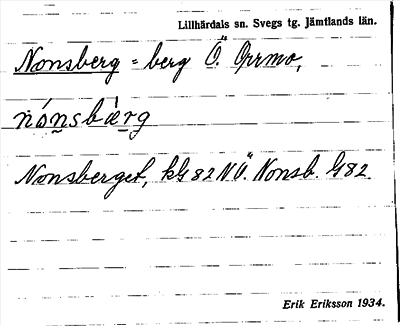 Lillhärdals sn. Svegs tg. Jämtlands län.
Nonsberg = berg Ö. Orrmo,
nónsbærg
Nonsberget, kb 82 NÖ. Nonsb. G82
Erik Eriksson 1934.